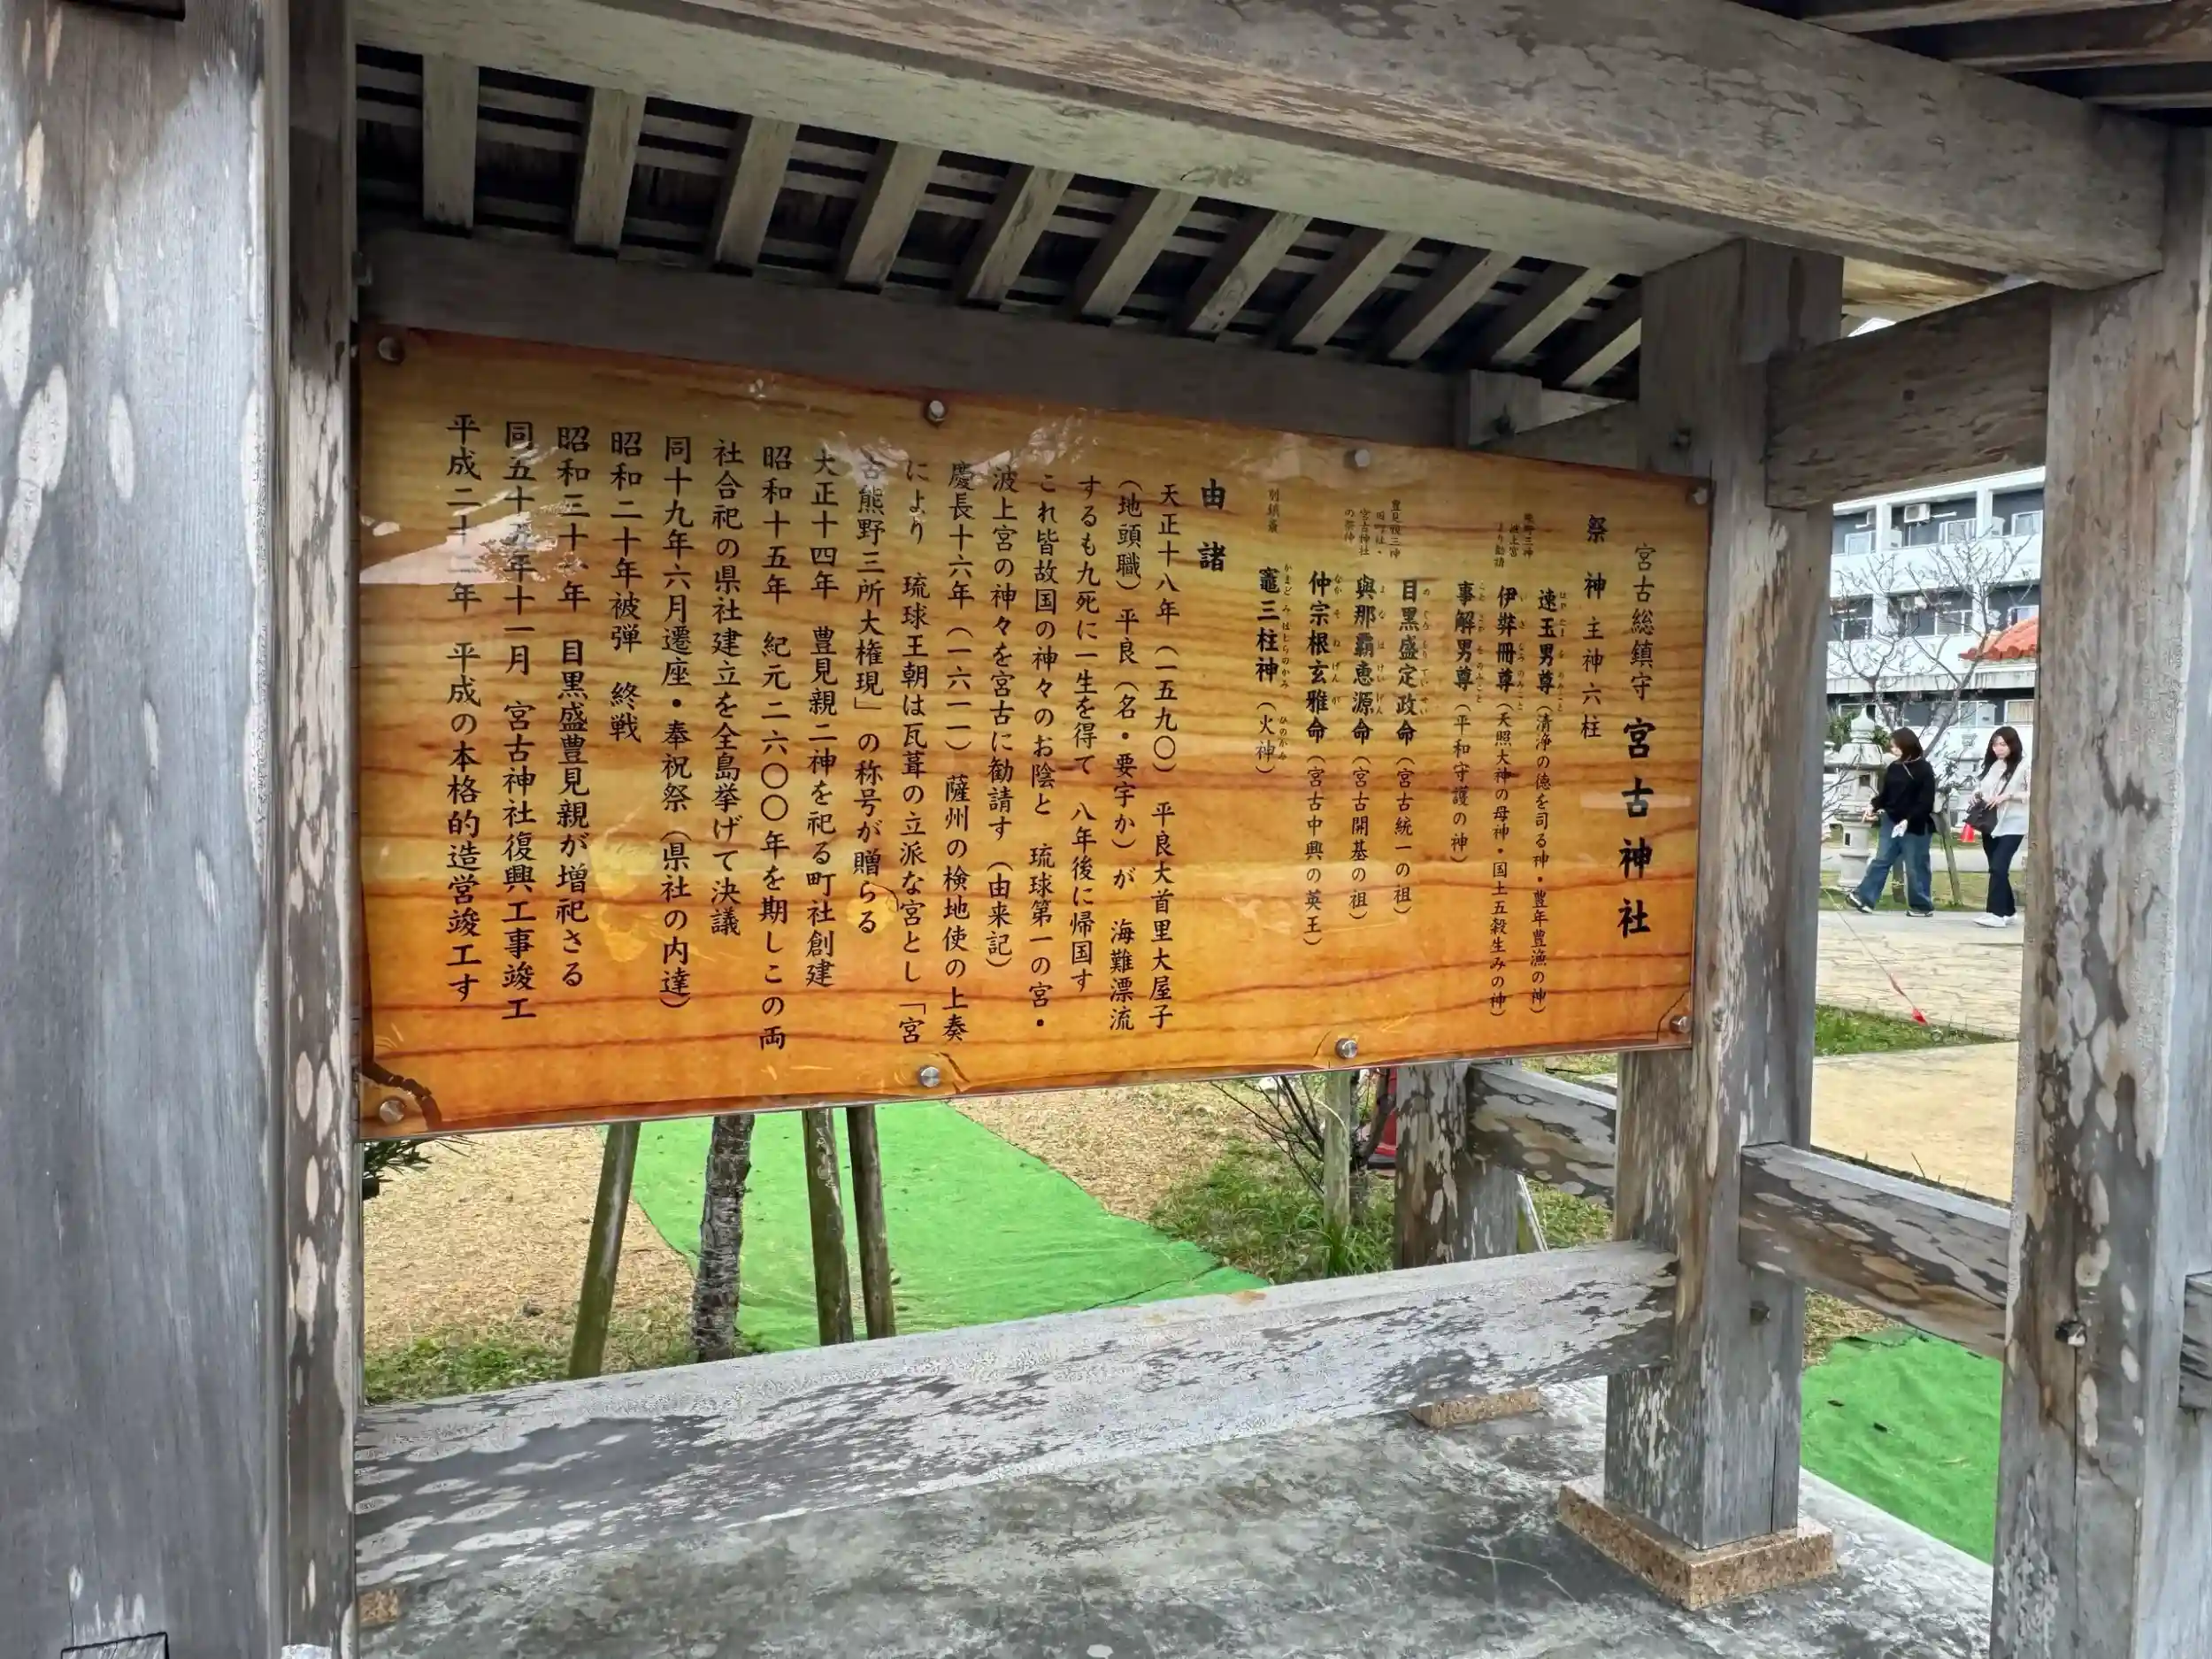 宮古総鎮守 宮古神社
祭神 主神六柱
熊野三神
波上宮
より勧請
速玉男尊（清浄の徳を司る神・豊年豊漁の神）
伊弉冊尊（天照大神の母神・国土五穀生みの神）
事解男尊（平和守護の神）
豊見親三神
宮古神社
の祭神
目黒盛定政命（宮古統一の祖）
與那覇恵源命（宮古開基の祖）
仲宗根玄雅命（宮古中興の英王）
別鎮斎
竈三柱神（火神）
由諸
天正十八年（一五九〇） 平良大首里大屋子
（地頭職）平良（名・要宇か）が 海難漂流
するも九死に一生を得て 八年後に帰国す
これ皆故国の神々のお陰と 琉球第一の宮・
波上宮の神々を宮古に勧請す（由来記）
慶長十六年（一六一一）薩州の検地使の上奏
により 琉球王朝は瓦葺の立派な宮とし「宮
古熊野三所大権現」の称号が贈らる
大正十四年 豊見親二神を祀る町社創建
昭和十五年 紀元二六〇〇年を期しこの両
社合祀の県社建立を全島挙げて決議
同十九年六月遷座・奉祝祭（県社の内達）
昭和二十年被弾 終戦
昭和三十 年 目黒盛豊見親が増祀さる
同五十五年十一月 宮古神社復興工事竣工
平成二十二年 平成の本格的造営竣工す